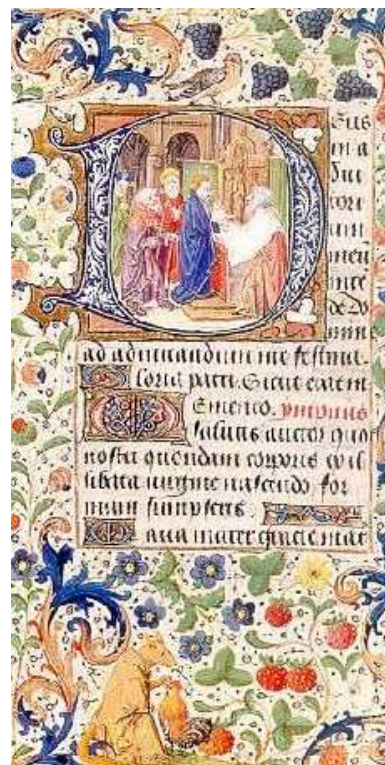 Deus
in a
diu
tori
um
meū
inte
de Do
mine
ad adiuuandum me festina.
Gloria patri. Sicut erat in
Memento. ympnus
salutis auctor quod
nostri quondam corporis ex il
libata uirgine nascendo for
mam sumpseris
Maria mater gracie mat